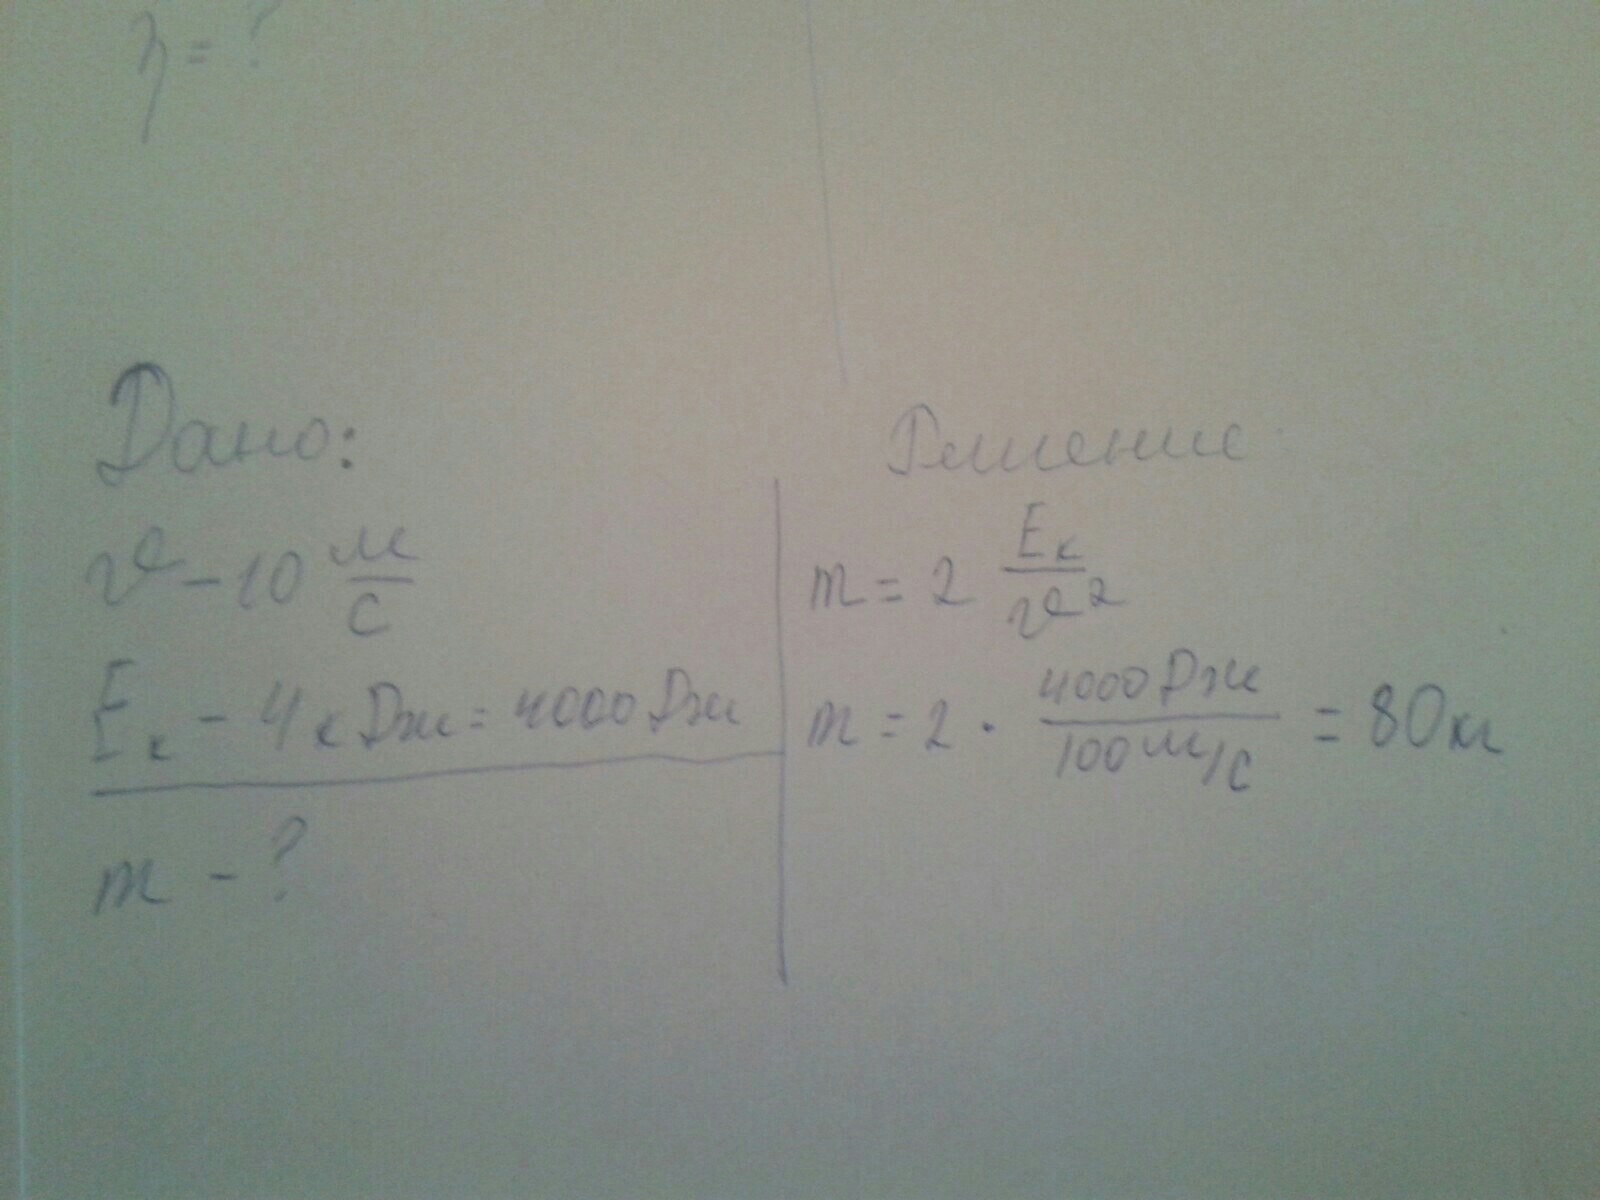 η = ?
Дано:
v - 10 м/с
Eк - 4 кДж = 4000 Дж
m - ?
Решение
m = 2 Eк/v²
m = 2 · 4000 Дж/100 м/с = 80 кг